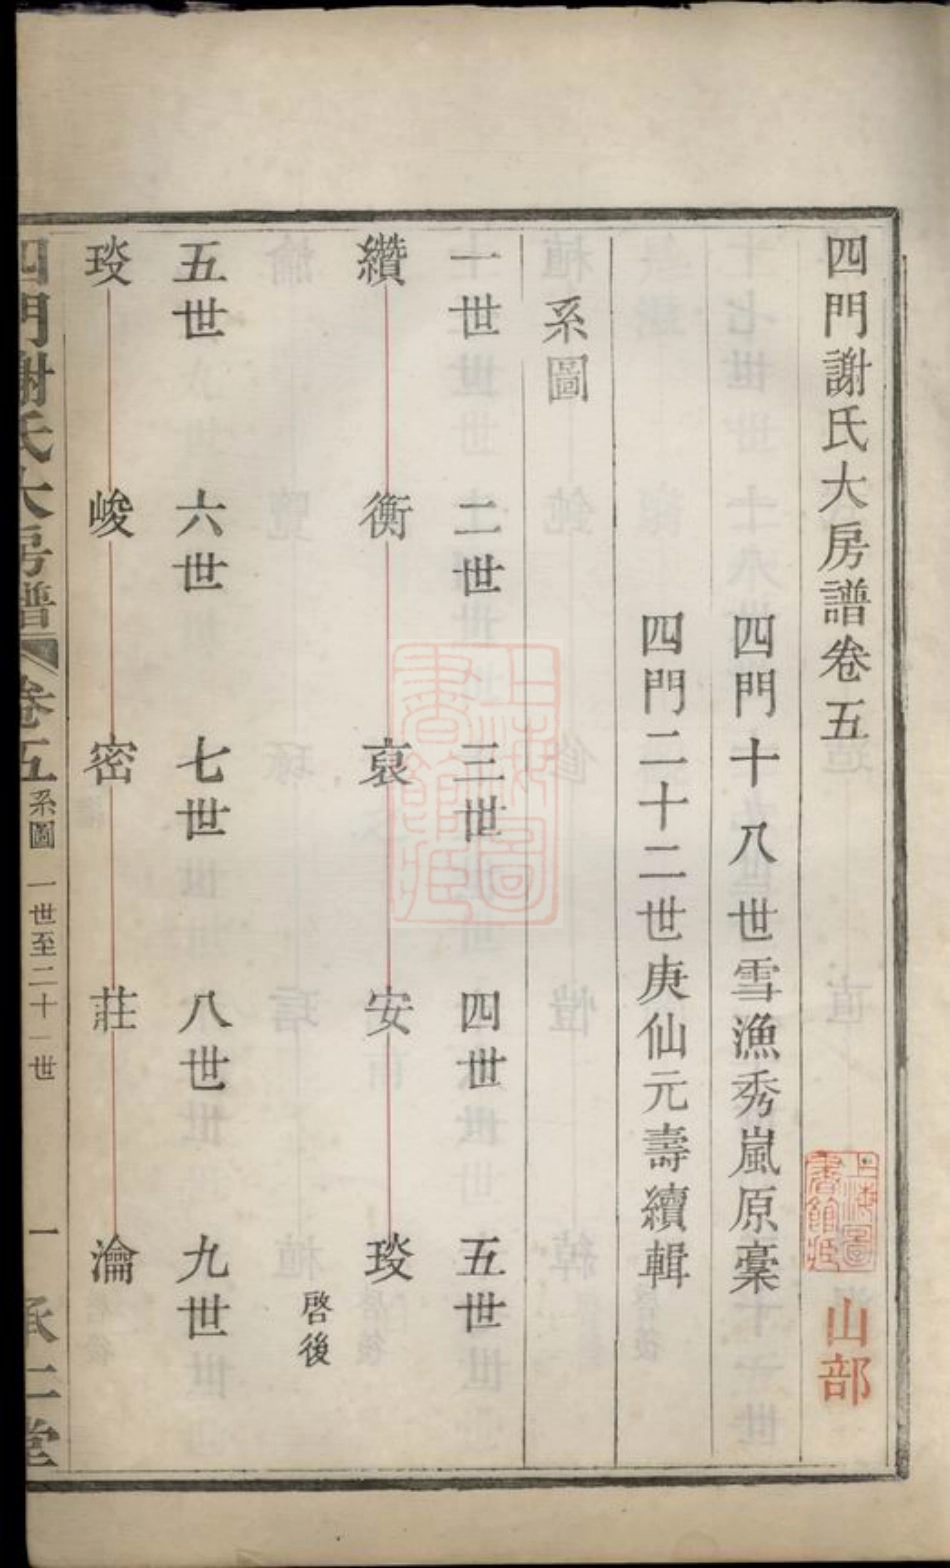 四門謝氏大房譜卷五
山部
四門十八世雪漁秀嵐原稾
四門二十二世庚仙元壽續輯
系圖
一世 二世 三世 四世 五世
纘 衡 裒 安 琰
啓後
五世 六世 七世 八世 九世
琰 峻 密 莊 瀹
四門謝氏大房譜 卷五 系圖 一世至二十一世 一 承仁堂
上海圖書館藏
上海圖書館藏